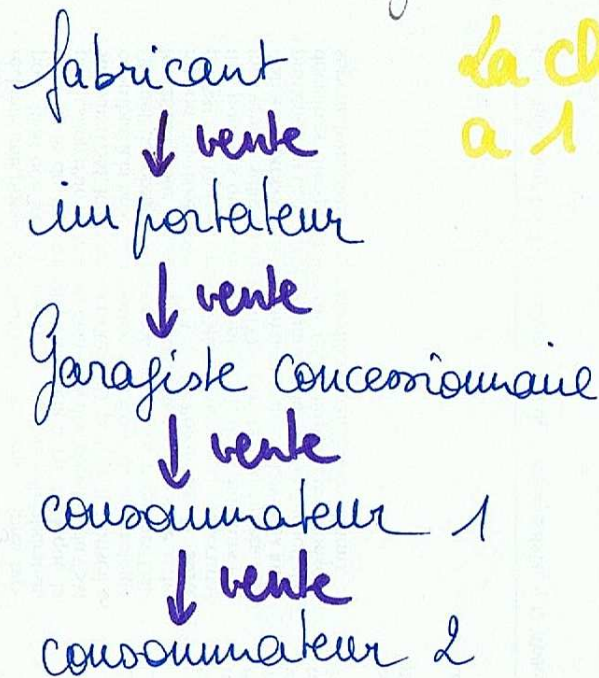 fabricant
↓ vente
importateur
↓ vente
Garagiste concessionnaire
↓ vente
consommateur 1
↓ vente
consommateur 2
La
a 1